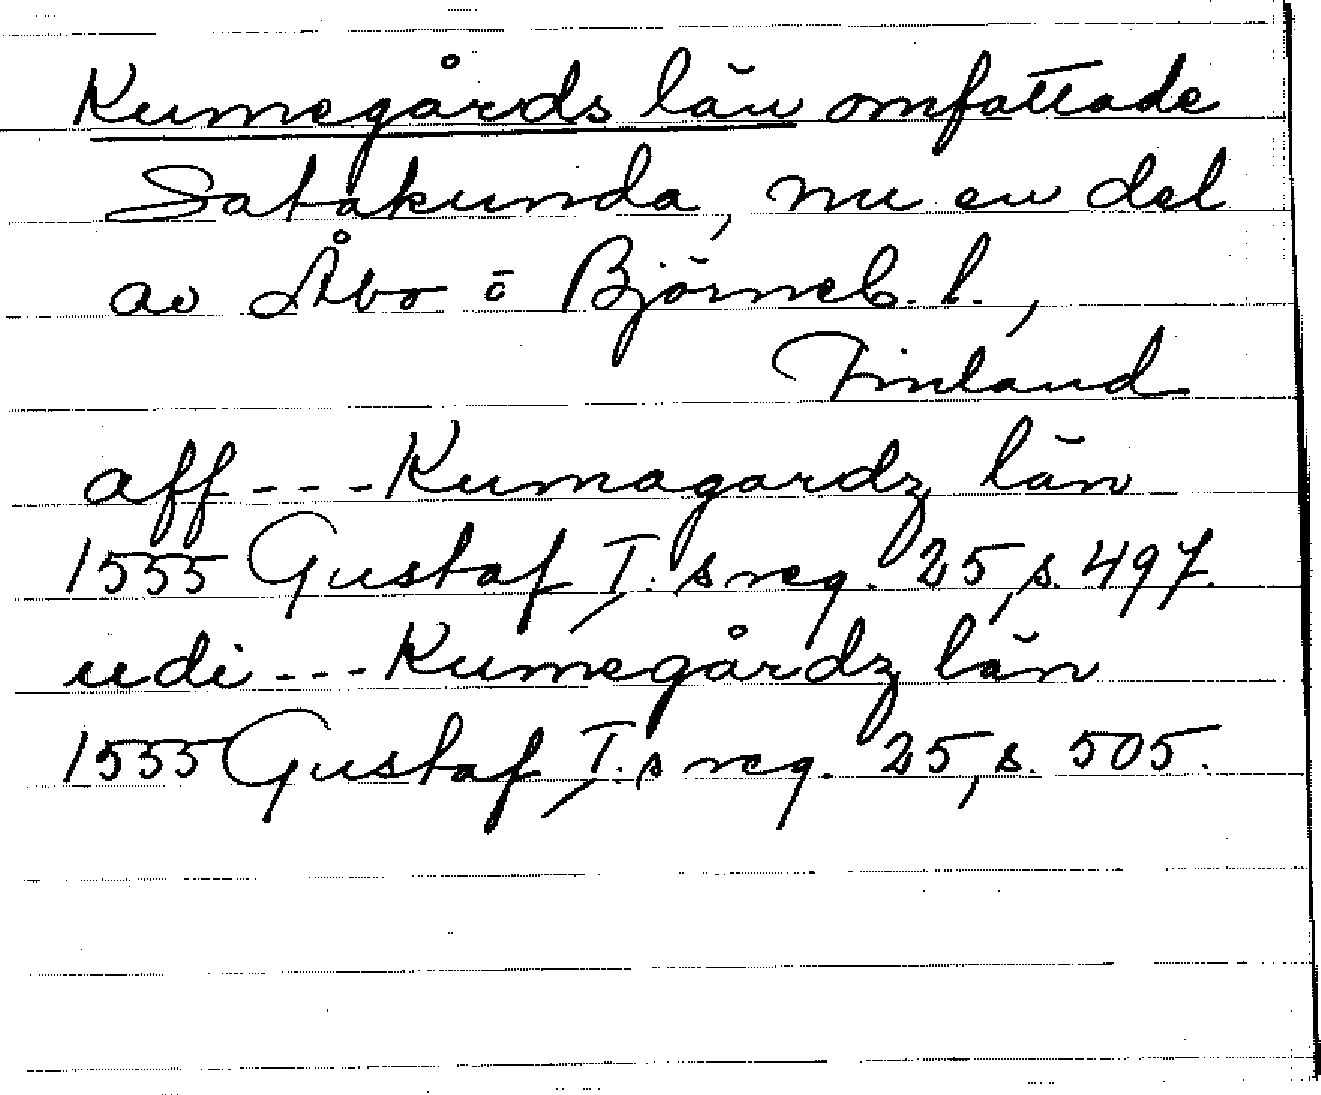 Kumegårds län omfattade
Satakunda, nu en del
av Åbo o Björneb. l.,
Finland
aff - - - Kumagardz län
1555 Gustaf I:s reg. 25, s. 497.
udi - - - Kumegårdz län
1555 Gustaf I:s reg. 25, s. 505.